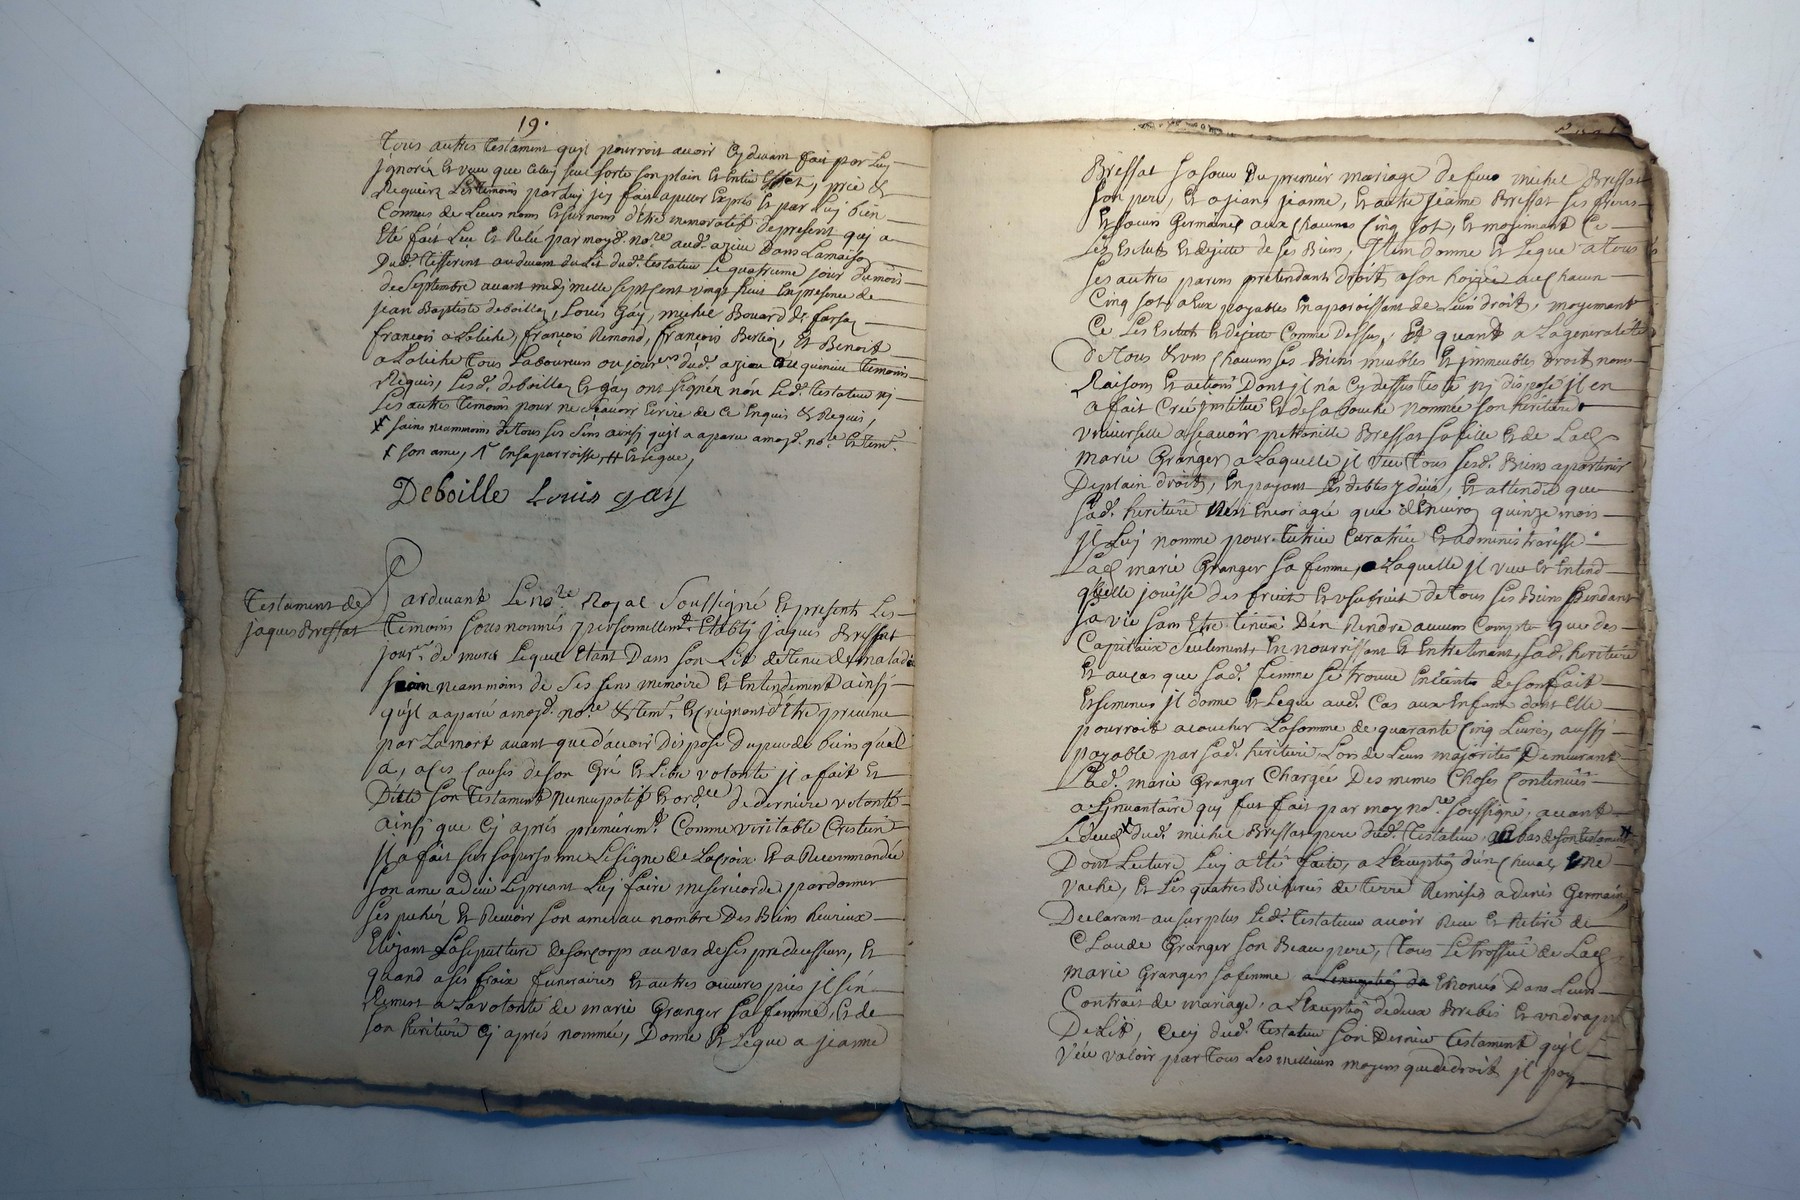 19.
Tous autres Testament quyl pourroit avoir Cy devant fait par luy
jgnorez Et veut que Celuy seul sorte son plain Et Entier Effet, prie &
Requiert Les temoins par luy jcy fait apeller Expres Et par luy bien
Connus de Leurs noms Et surnoms d'être memoratif de present quj a
Eté fait Leu Et Relu par moyd. no.re aud. azieu Dans La maison
Dud. testateur au devant du Lit dud. testateur Le quatrieme jour du mois
de Septembre avant midj mille sept cent vingt huit En presence de
jean Baptiste deboille, Louis Gay, michel Bouard de
françois a Laliche, françois Remond, françois Berlioz, Et Benoit
a Laliche tous Laboureurs ou jour.rs dud. azieu temoins
Requis, Lesd. deboille Et gay ont signéz non Led. testateur nj
Les autres temoins pour ne sçavoir Ecrire de Ce Enquis & Requis,
sains neammoins de tous ses sens ainsj quyl a aparu a moyd. no.re Et tem.s
son ame, En sa parroisse, Et Legue,
Deboille Louis gay
Testament de
jaques Bressat
Pardevant Le no.re Royal Soussigné Et present Les
Temoins sous nommés personnellem.t Etably jaques Bressat
jour.r de mures Lequel Etant Dans son Lit detenu de maladie
sain neammoins de Ses sens memoire Et Entendement ainsj
quyl a aparu a moyd. no.re & tem.s Et Creignant d'être prevenu
par La mort avant que d'avoir Disposé du peu de biens qu'il
a, a Ces Causes de son Gré Et Libre volonté jl a fait Et
Dicté son Testament Nuncupatif Et ord.ce de derniere volonté
ainsj que Cj aprés premierem.t Comme veritable Cretien
jl a fait sur sa personne Le signe de La Croix Et a Recommandée
son ame a dieu Le priant Luj faire misericorde pardonner
ses pechéz Et Recevoir son ame au nombre Des Biens heureux
Elizant La sepulture de son corps au vas de ses predecesseurs, Et
quand a ses fraix funeraires Et autres œuvres pies jl s'en
Remest a La volonté de marie Granger sa femme, Et de
son heritiere Cj aprés nommée, Donne Et Legue a jeanne
Bressat sa sœur Du premier mariage de feu michel Bressat
son pere, Et a jean, jeanne, Et autre jeanne Bressat ses freres
Et sœurs Germaines aux Chacuns Cinq sols, Et moyennant Ce
Les Exclut Et dejette de ses Biens, Jtem donne Et Legue a tous
ses autres parens pretendants Droit a son hoirie a Chacun
Cinq sols a Eux payables En aparoissant de Leur droit, moyennant
Ce Les Exclut Et dejette Comme Dessus, Et quand a La generalité
De tous & uns Chacuns ses Biens meubles Et jmmeubles Droit noms
Raisons Et actions Dont jl n'a Cy dessus testé nj disposé jl en
a fait Créé jnstitué Et de sa bouche nommée son heritiere
universelle a sçavoir pettronille Bressat sa fille Et de Lad.
marie Granger a Laquelle jl veut tous sesd. Biens apartenir
De plain droit, En payant ses debtes y deüs, Et attendu que
sad. heritiere n'est Encor agée que d'Environ quinze mois
jl Luj nomme pour tutrice Curatrice Et administraresse
Lad. marie Granger sa femme, a Laquelle jl veut Et Entend
quelle jouisse des fruits Et usufruit de tous ses Biens pendant
sa vie sans Etre tenue D'en Rendre aucun Compte que des
Capitaux seulement, En nourrissant Et Entretenant, sad. heritiere
Et au cas que sad. femme se trouve Enceinte de son fait
jl donne Et Legue aud. Cas aux Enfans dont Elle
pourroit acoucher La somme de quarante Cinq Livres, aussj
payable par sad. heritiere Lors de Leurs majorités Demeurant
Lad. marie Granger Chargée Des memes Choses Contenües
a L'jnvantaire quj fut fait par moy no.re soussigné, avant
Le deces dud. michel Bressat pere dud. testateur, au bas de son testament
Dont Lecture Luj a Eté faite, a L'Exception d'un Cheval, Une
vache, Et Les quatres Bicherées de terre Remises a denis Germain
Declarant au surplus Led. testateur avoir Receu Et Retiré de
Claude Granger son Beau pere, tous Le trossel de Lad.
marie Granger sa femme Enoncé Dans Leur
Contrat de mariage, a L'Exception de deux Brebis Et un drap
De Lit, Cecy dud. testateur son Dernier testament quyl
Veut valoir par tous Les meilleurs moyens que de droit jl pourra